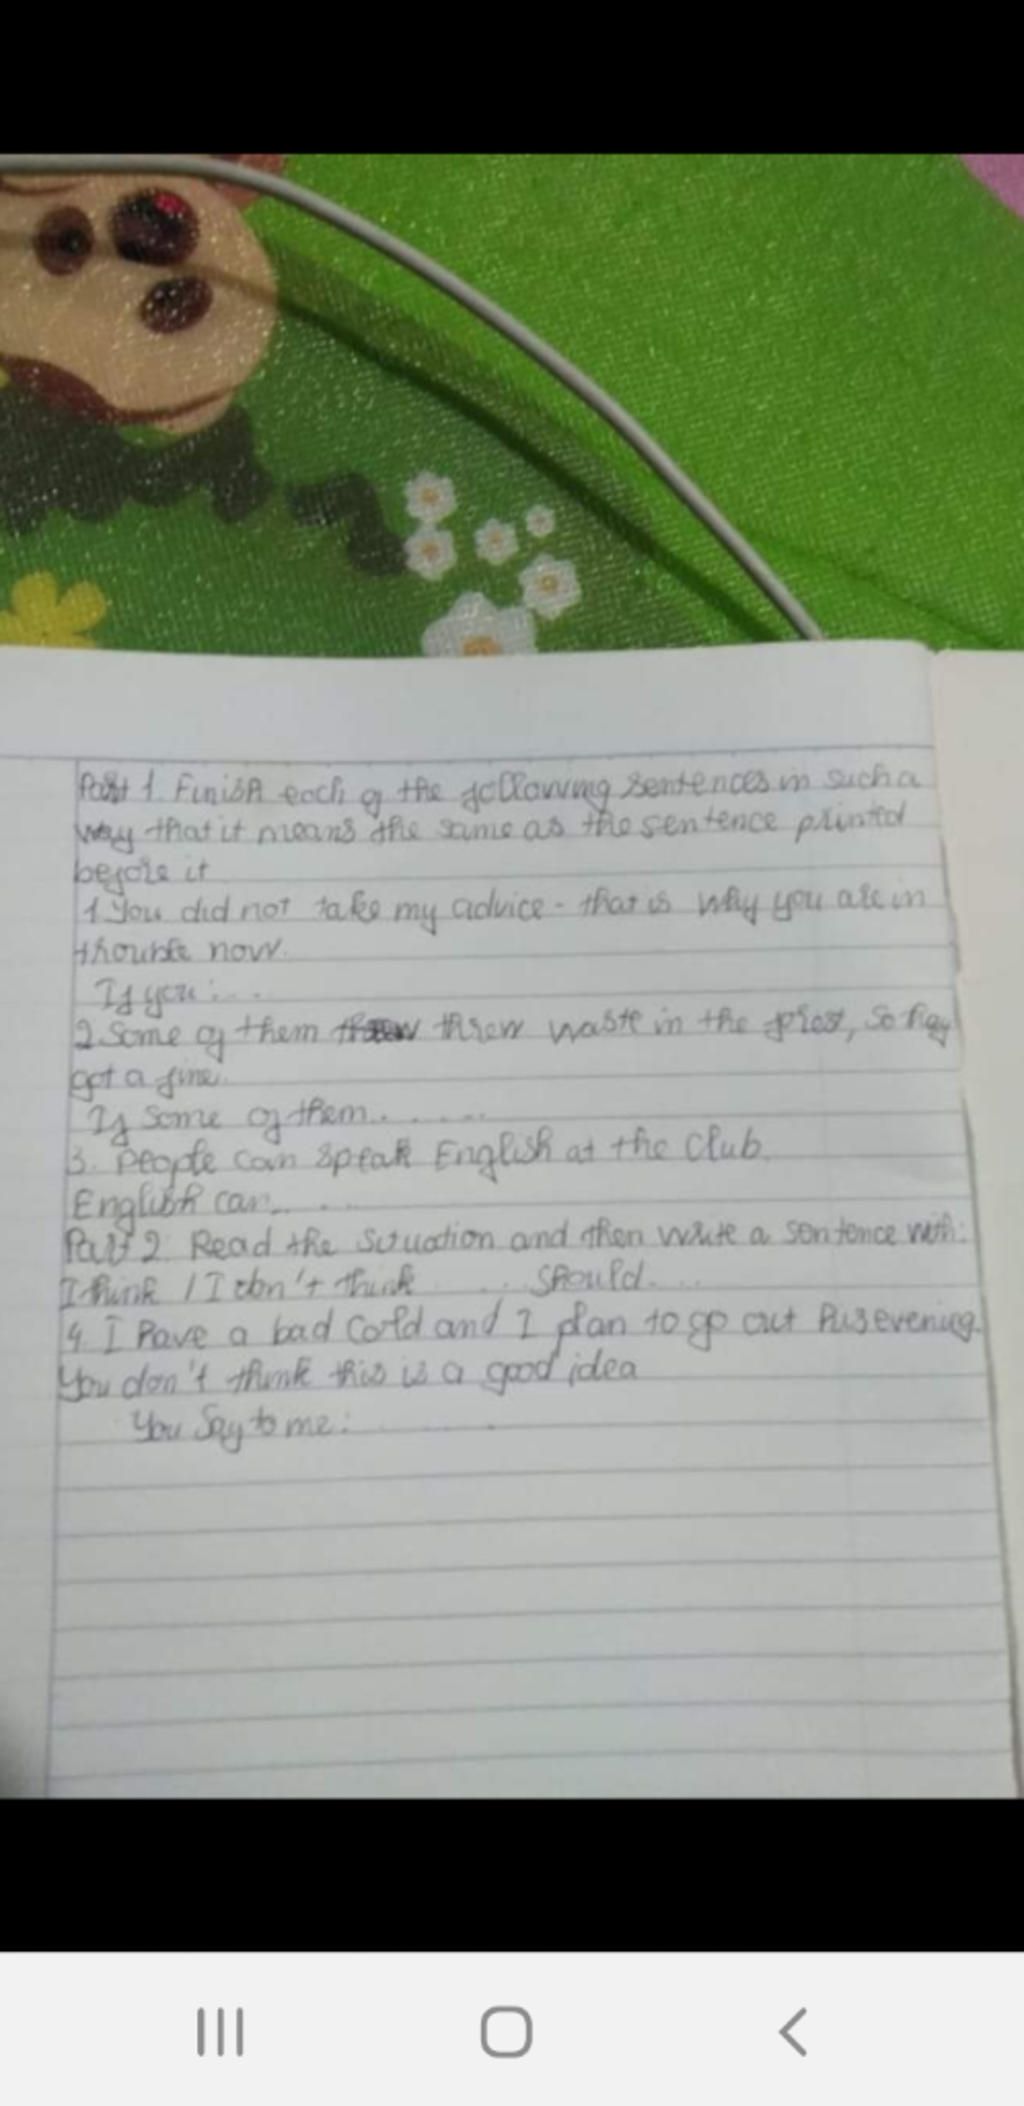 Part 1. Finish each of the following sentences in such a
way that it means the same as the sentence printed
before it
1. You did not take my advice - that is why you are in
trouble now.
If you: ...
2. Some of them threw waste in the , so they
got a fine.
If some of them. . . . . . .
3. People can speak English at the club.
English can. . . . .
Part 2. Read the situation and then write a sentence with:
I think / I don't think . . . . should. . . .
4. I have a bad cold and I plan to go out this evening.
You don't think this is a good idea
You say to me: . . . . . . . . . .